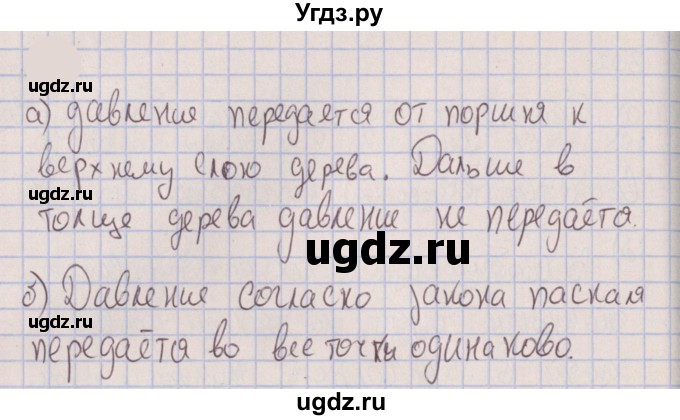 Угдз.ру
ugdz.ru ugdz.ru
а) давление передается от поршня к
верхнему слою дерева. Дальше в
ugdz.ru ugdz.ru
толще дерева давление не передаётся.
ugdz.ru
б) Давление согласно закона паскаля
ugdz.ru ugdz.ru
передаётся во все точки одинаково.
ugdz.ru ugdz.ru